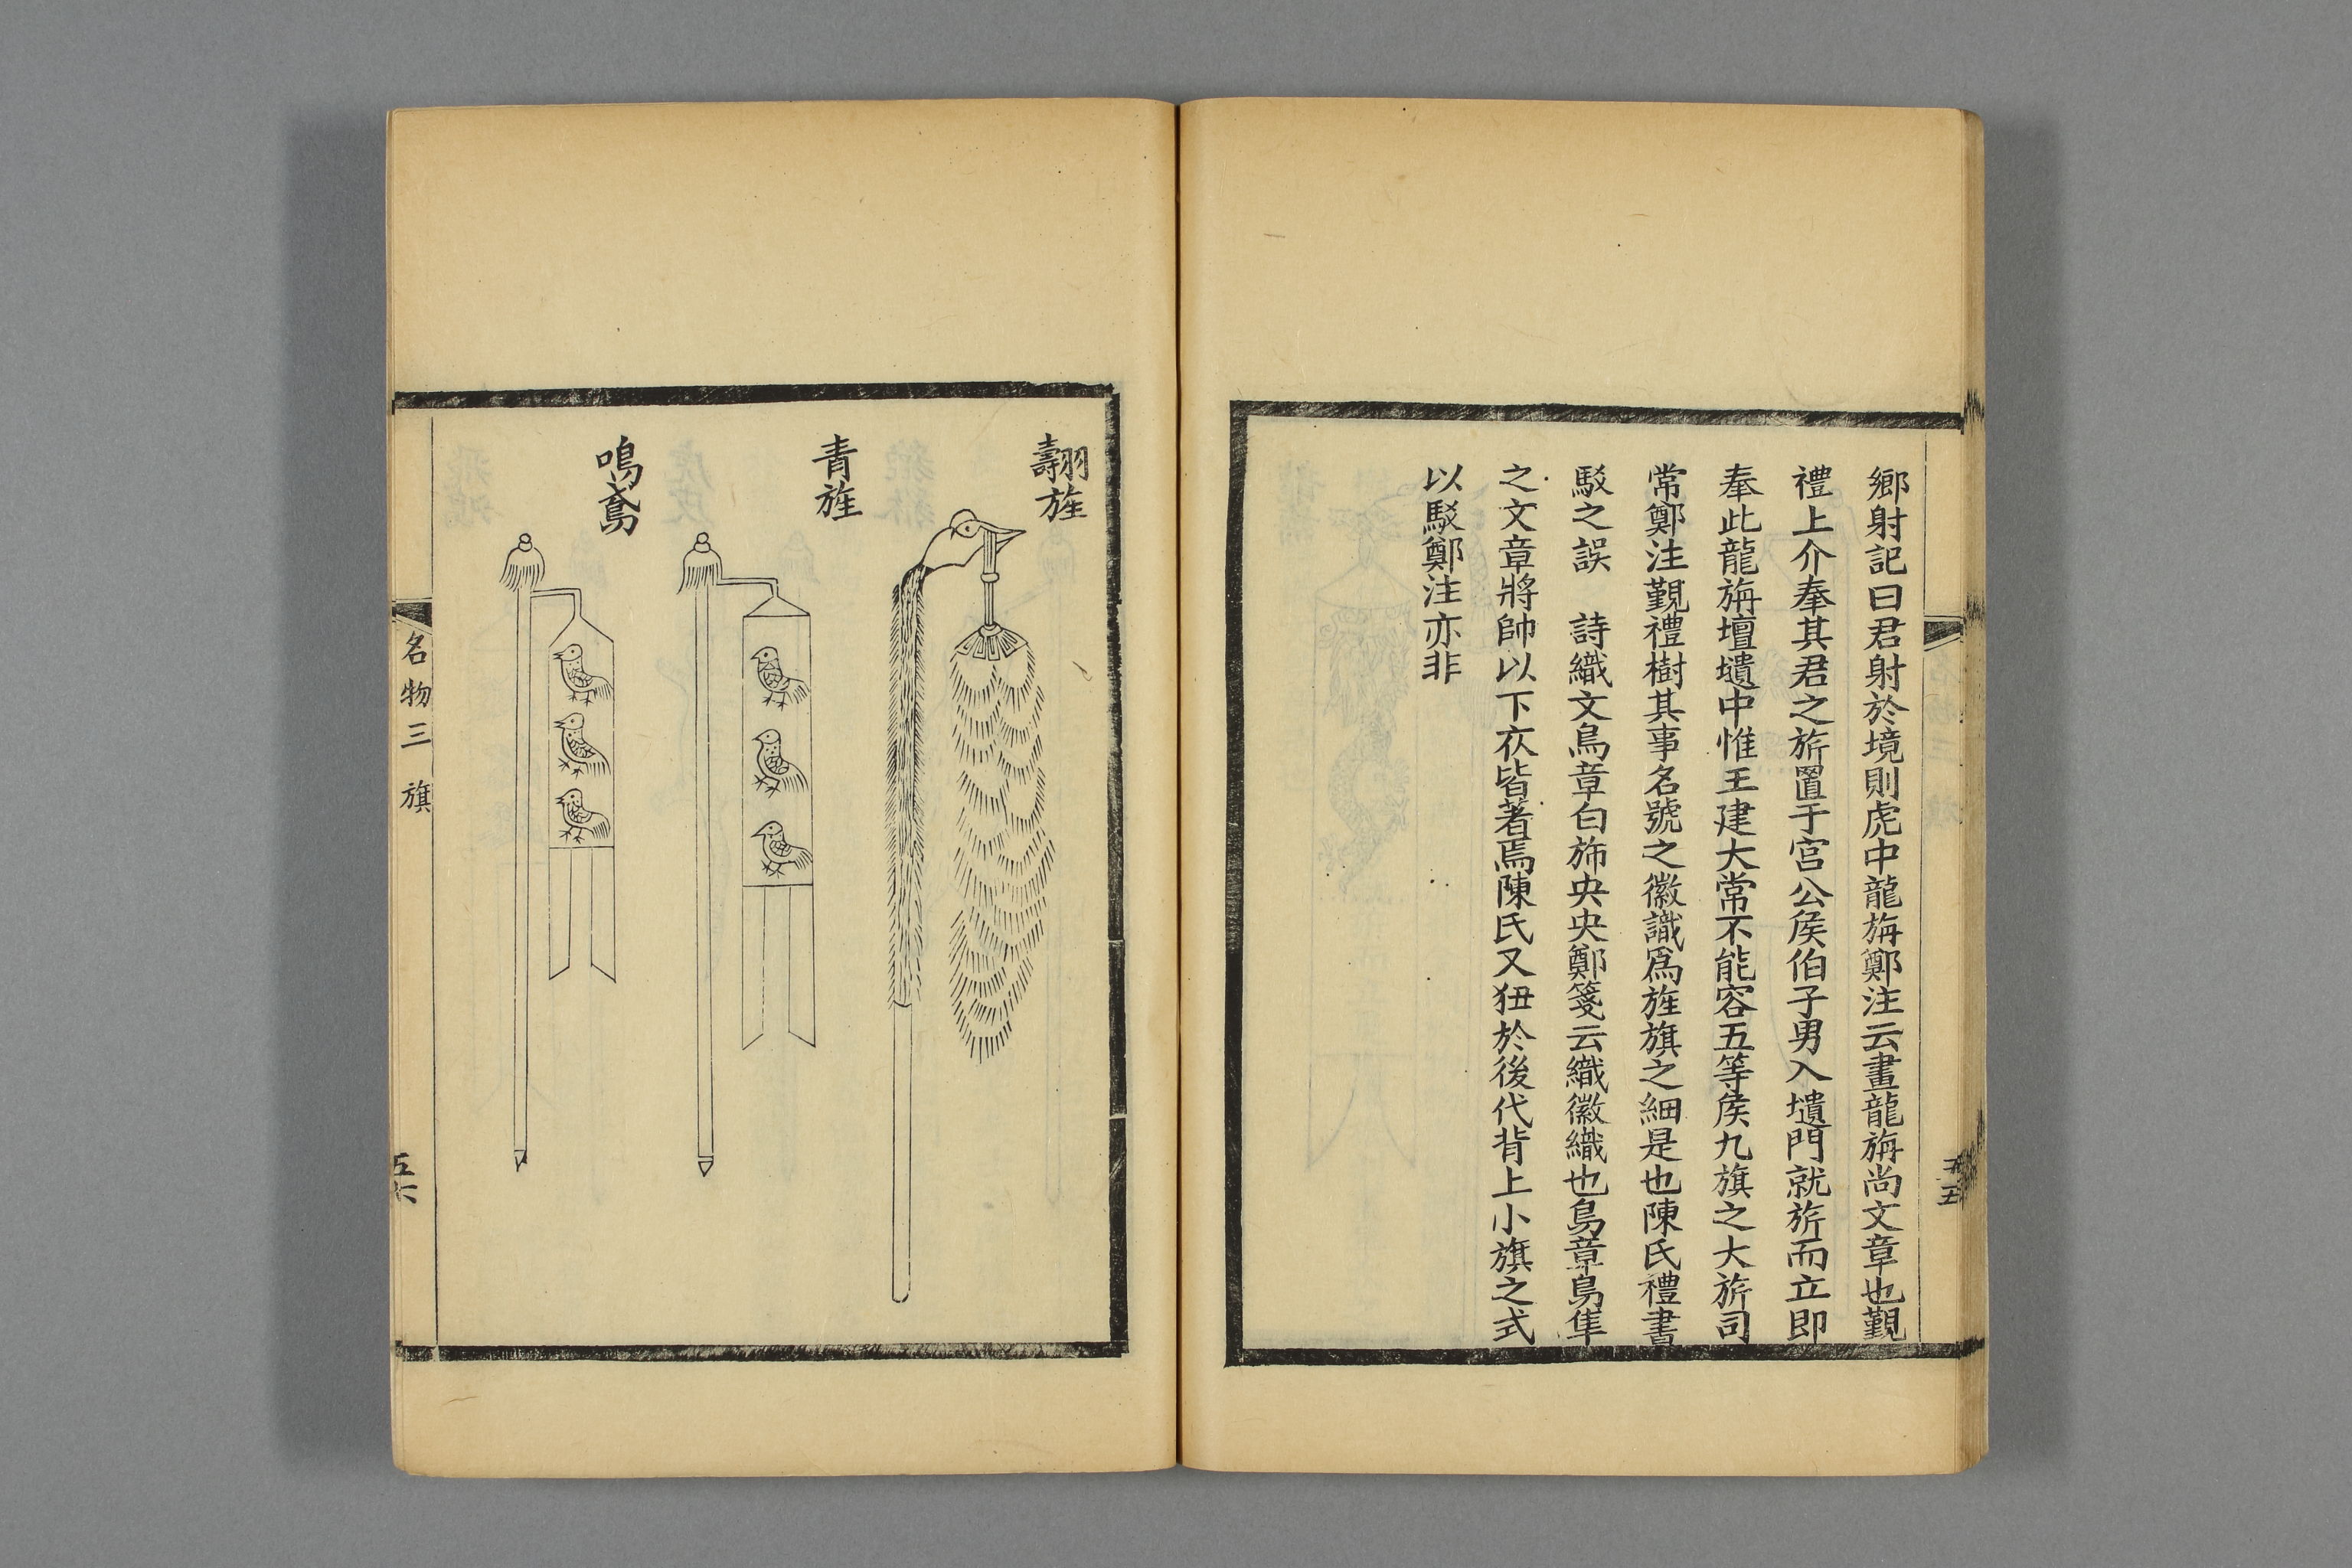 鄉射記曰君射於境則虎中龍旃鄭注云畫龍旃尚文章也覲
禮上介奉其君之旂置于宮公侯伯子男入壝門就旂而立即
奉此龍旃壇壝中惟王建大常不能容五等侯九旗之大旂司
常鄭注覲禮樹其事名號之徽識爲旌旗之細是也陳氏禮書
駁之誤　詩織文鳥章白斾央央鄭箋云織徽織也鳥章鳥隼
之文章將帥以下衣皆著焉陳氏又狃於後代背上小旗之式
以駁鄭注亦非
五五
翿旌
青旌
鳴鳶
名物三　旗
五六